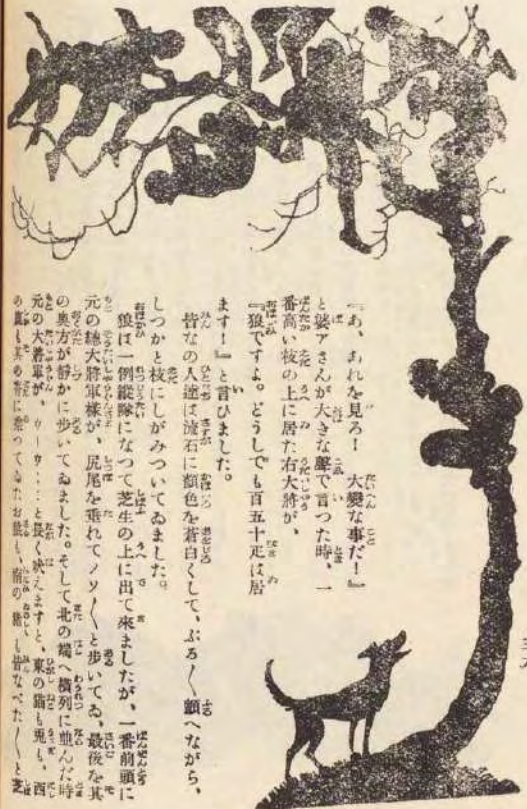 『あ、あれを見ろ！　大變な事だ！』
と婆アさんが大きな聲で言つた時、一
番高い枝の上に居た右大將が、
『狼ですよ。どうしでも百五十疋は居
ます！』と言ひました。
皆なの人達は流石に顏色を蒼白くして、ぶる〳〵顫へながら、
しつかと枝にしがみついてゐました。
狼は一例縱隊になつて芝生の上に出て來ましたが、一番前頭に
元の總大將軍樣が、尻尾を垂れてノソ〳〵と歩いてゐ、最後を其
の奧方が靜かに歩いてゐました。そして北の端へ横列に並んだ時
元の大將軍が、ウーウ……と長く吠えますと、東の猫も兎も、西
の鹿も其の背に乘つてゐたお猿も、南の猪も皆なべた〳〵と芝